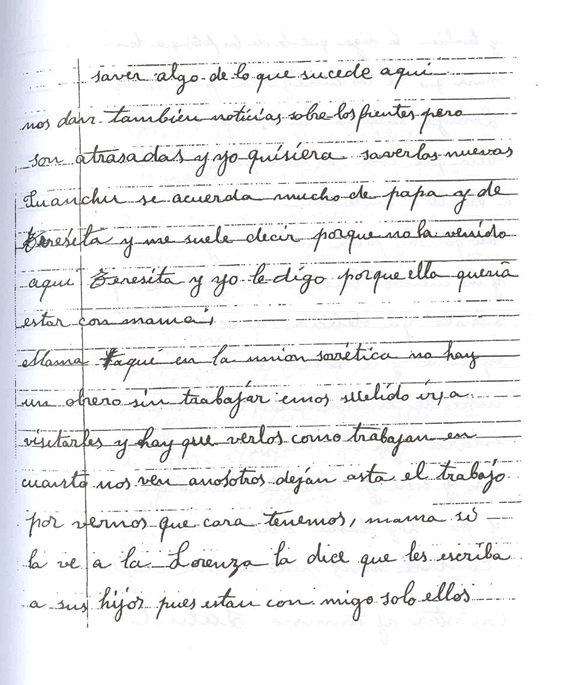 saver algo de lo que sucede aqui
nos dan tambien noticias sobre los frentes pero
son atrasadas y yo quisiera saverlas nuevas
Juanchu se acuerda mucho de papa y de
Teresita y me suele decir porque no ha venido
aqui Teresita y yo le digo porque ella queria
estar con mama;
Mama aqui en la union soviética no hay
un obrero sin trabajar emos suelido ir a
visitarles y hay que verlos como trabajan en
cuanto nos ven anosotros dejan asta el trabajo
por vernos que cara tenemos, mama si
la ve a la Lorenza la dice que les escriba
a sus hijos pues estan con migo solo ellos